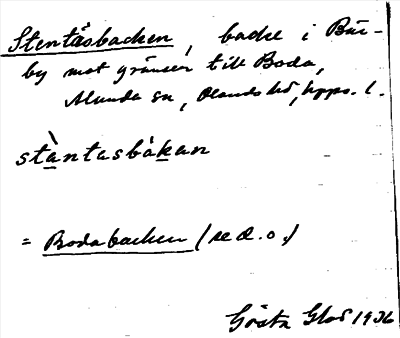 Stentåsbacken, backe i Bär-
by mot gränsen till Boda,
Alunda sn, Olands hd, Upps. l.
stàntasbàkan
= Bodabacken (se d. o.)
Gösta Glad 1936